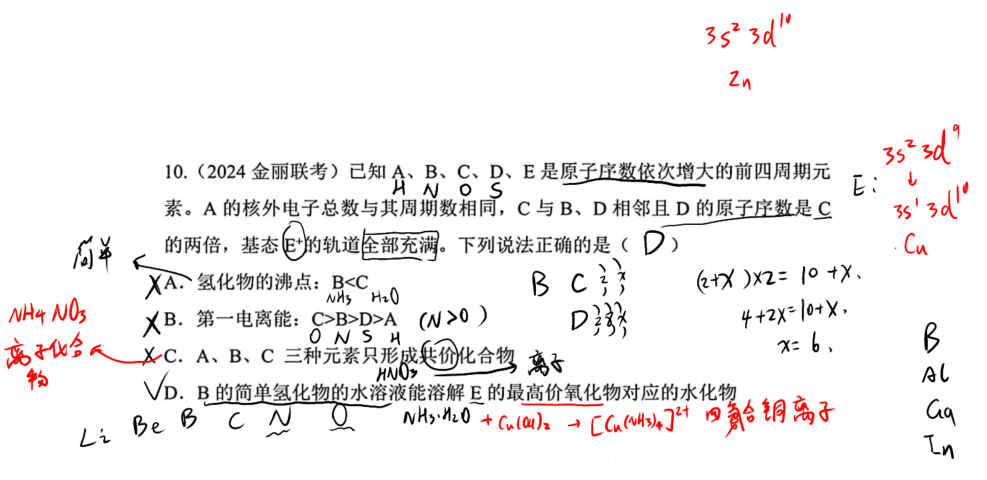 3s² 3d¹⁰
Zn
10.（2024 金丽联考）已知 A、B、C、D、E 是原子序数依次增大的前四周期元
H N O S
素。A 的核外电子总数与其周期数相同，C 与 B、D 相邻且 D 的原子序数是 C
的两倍，基态 E⁺的轨道全部充满。下列说法正确的是（ D ）
E:
3s² 3d⁹
↓
3s¹ 3d¹⁰
Cu
简单
XA．氢化物的沸点：B<C
NH₃ H₂O
XB．第一电离能：C>B>D>A (N>O)
O N S H
XC．A、B、C 三种元素只形成共价化合物 离子
HNO₃
√D．B 的简单氢化物的水溶液能溶解 E 的最高价氧化物对应的水化物
NH₃·H₂O + Cu(OH)₂ → [Cu(NH₃)₄]²⁺ 四氨合铜离子
NH4 NO₃
离子化合
物
B C 2 x
D
(2+x)×2= 10+x.
4+2x=10+x,
x= 6.
B
Al
Ga
In
Li Be B C N O